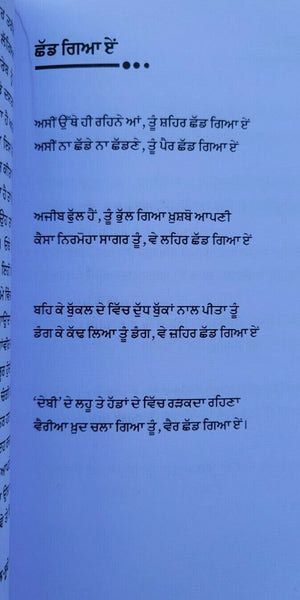 ਛੱਡ ਗਿਆ ਏਂ
ਅਸੀਂ ਉੱਥੇ ਹੀ ਰਹਿਨੇ ਆਂ, ਤੂੰ ਸ਼ਹਿਰ ਛੱਡ ਗਿਆ ਏਂ
ਅਸੀਂ ਨਾ ਛੱਡੇ ਨਾ ਛੱਡਣੇ, ਤੂੰ ਪੈਰ ਛੱਡ ਗਿਆ ਏਂ
ਅਜੀਬ ਫੁੱਲ ਹੈਂ, ਤੂੰ ਭੁੱਲ ਗਿਆ ਖ਼ੁਸ਼ਬੋ ਆਪਣੀ
ਕੈਸਾ ਨਿਰਮੋਹਾ ਸਾਗਰ ਤੂੰ, ਵੇ ਲਹਿਰ ਛੱਡ ਗਿਆ ਏਂ
ਬਹਿ ਕੇ ਬੁੱਕਲ ਦੇ ਵਿੱਚ ਦੁੱਧ ਬੁੱਕਾਂ ਨਾਲ ਪੀਤਾ ਤੂੰ
ਡੰਗ ਕੇ ਕੱਢ ਲਿਆ ਤੂੰ ਡੰਗ, ਵੇ ਜ਼ਹਿਰ ਛੱਡ ਗਿਆ ਏਂ
'ਦੇਬੀ' ਦੇ ਲਹੂ ਤੇ ਹੱਡਾਂ ਦੇ ਵਿੱਚ ਰੜਕਦਾ ਰਹਿਣਾ
ਵੈਰੀਆ ਖ਼ੁਦ ਚਲਾ ਗਿਆ ਤੂੰ, ਵੈਰ ਛੱਡ ਗਿਆ ਏਂ।